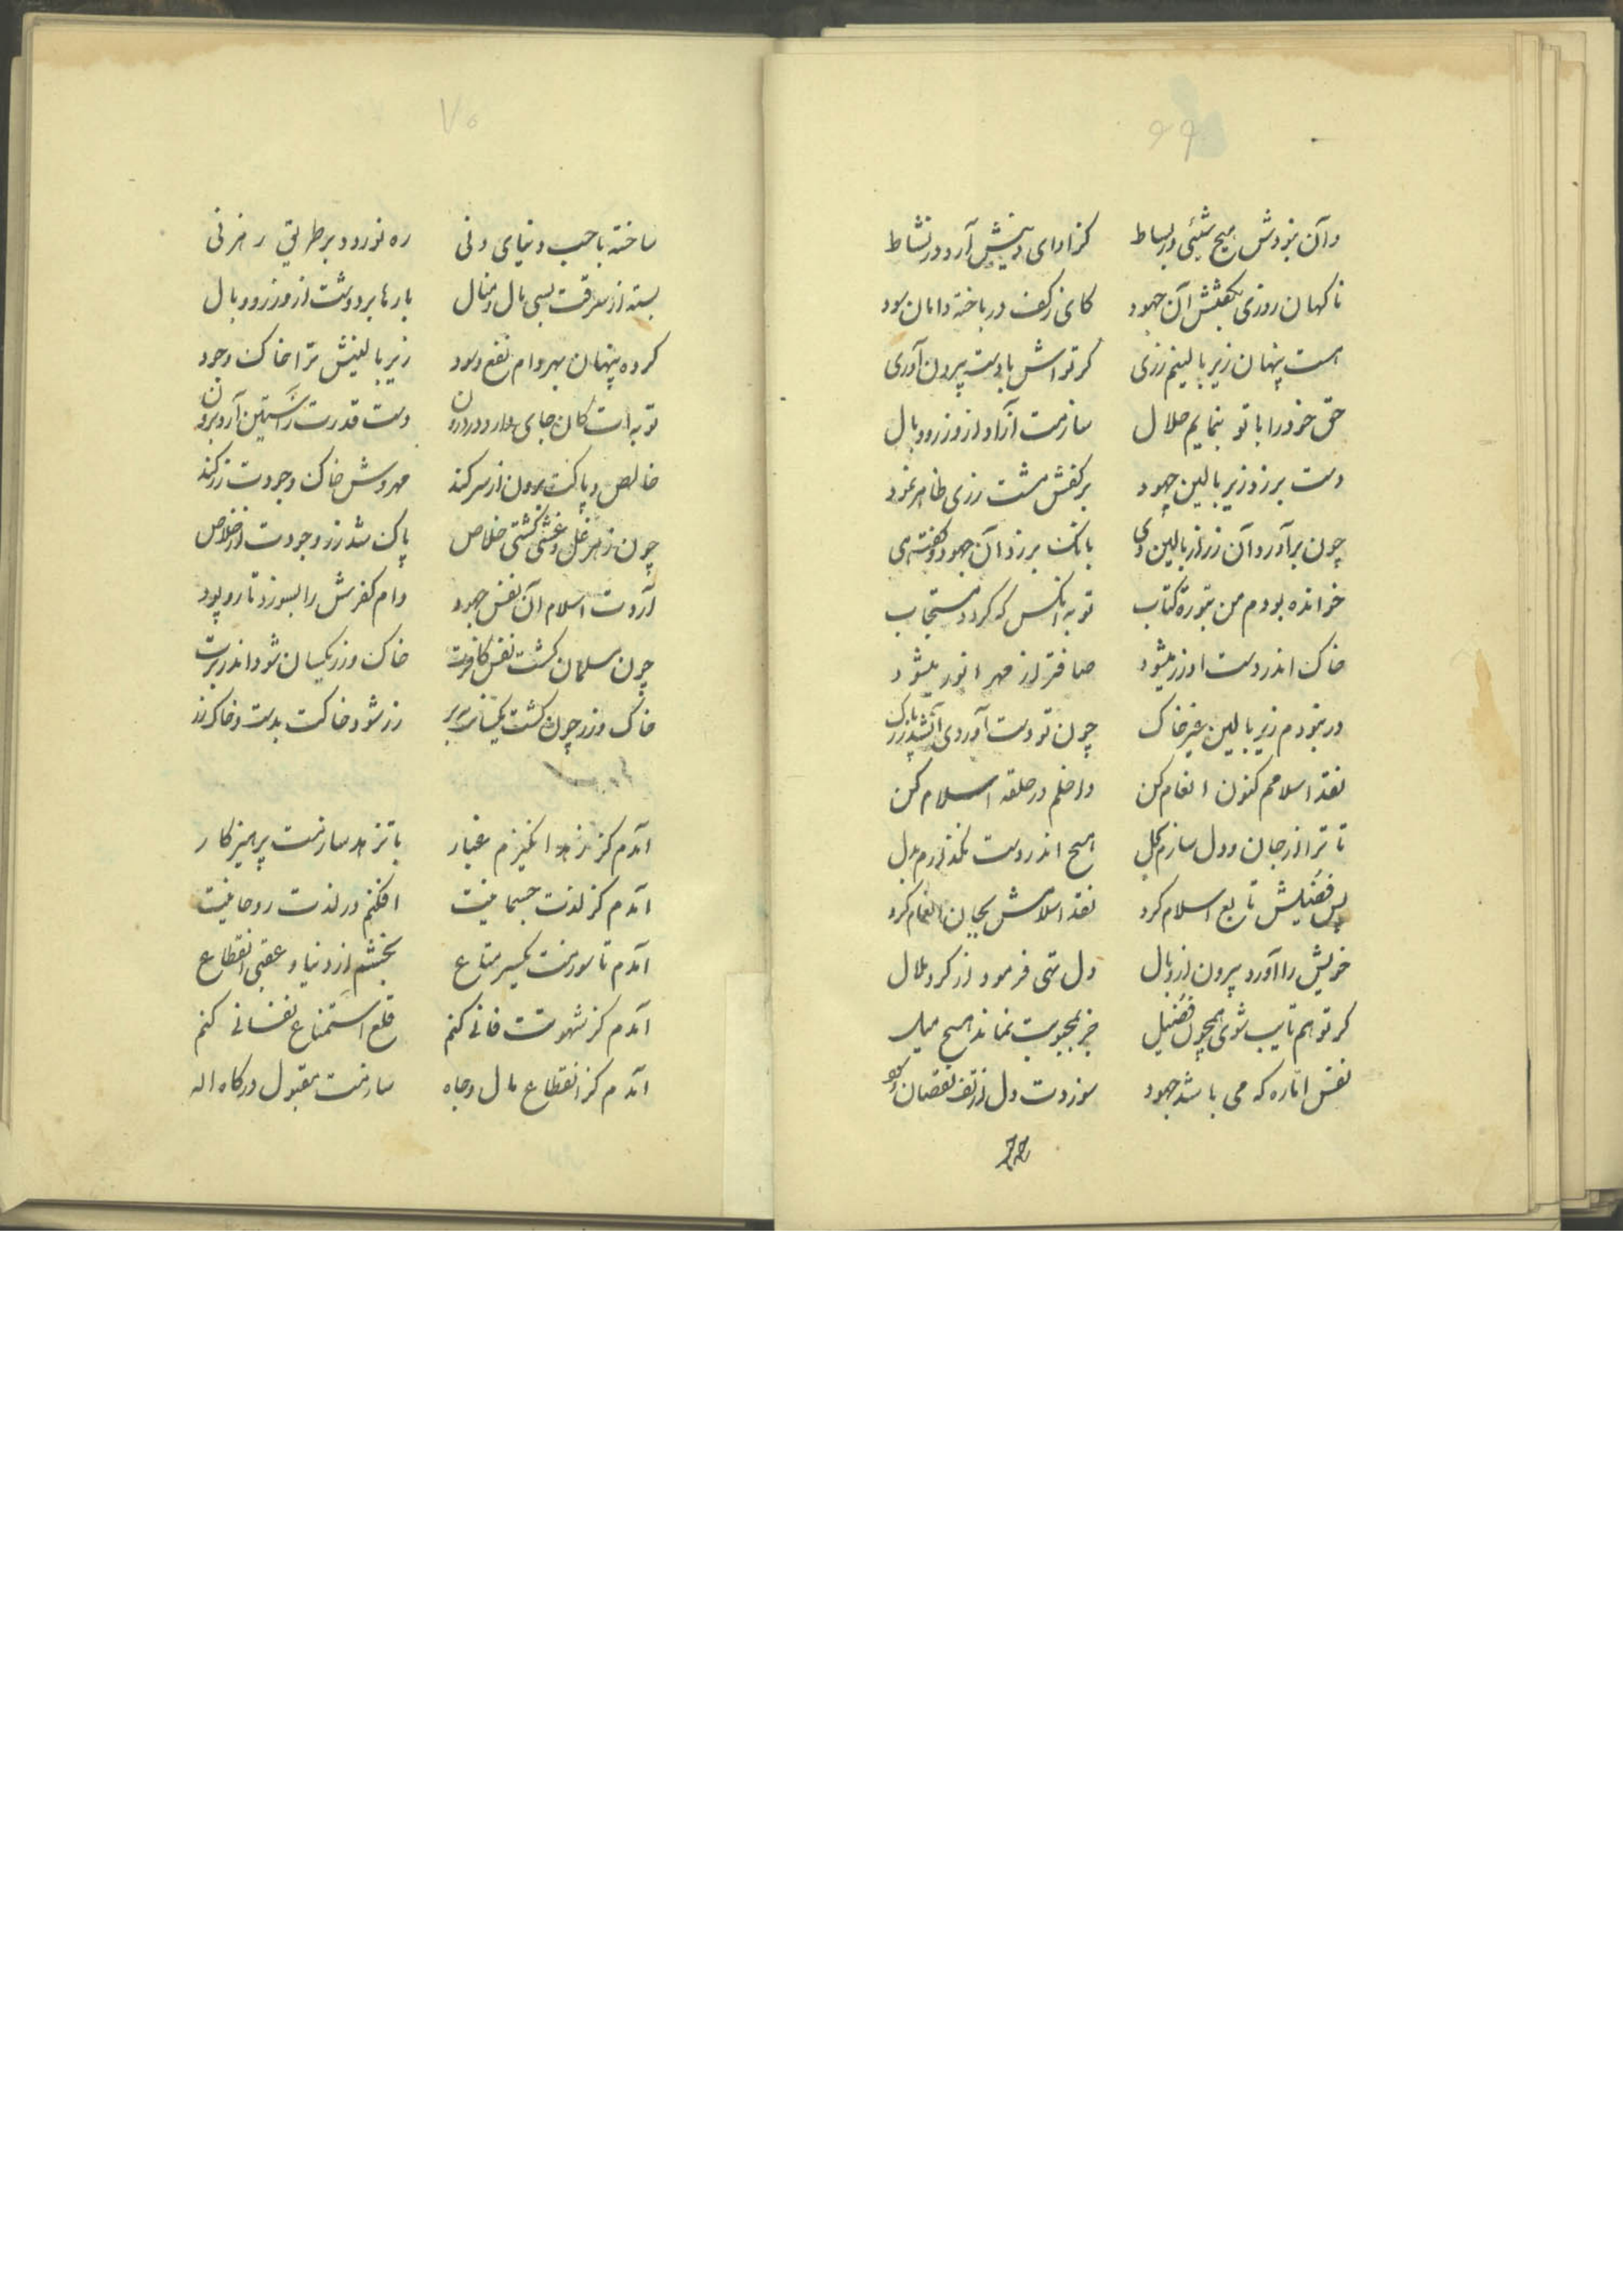 ۶۹
وآن نبودش هیچ شیئی در بساط کز ادای دینش آرد در نشاط
ناکهان روزی بکفتش آن جهود کای زکف در باخته دامان سود
هست پنهان زیر بالینم زری کر تواش با دست بیرون آوری
حق خود را با تو بنمایم حلال سازمت آزاد از وزر و وبال
دست برزد زیر بالین جهود برکفش مشت زری ظاهر نمود
چون برآورد آن زر از بالین وی بانک برزد آن جهود و کفت هی
خوانده بودم من بتورة کتاب توبه آنکس که کردد مستجاب
خاک اندر دست او زر میشود صافتر از مهر انور میشود
در نبودم زیر بالین غیر خاک چون تو دست آوردی آنشد زر پاک
نقد اسلامم کنون انعام کن داخلم در حلقه اسلام کن
تا ترا از جان و دل سازم بحل هیچ اندر دست نکذارم بدل
پس فضیلش تابع اسلام کرد نقد اسلامش بجان انعام کرد
خویش را آورد بیرون از وبال دل تهی فرمود از کرد ملال
کر تو هم تایب شوی همچون فضیل جز بمحبوبت نماند هیچ میل
نفس اماره که می باشد جهود سوزدت دل از تف نقصان و
۷۰
ساخته با حب دنیای دنی ره نوردد بر طریق رهزنی
بسته از سرقت بسی مال و منال بارها بر دوشت از وزر و وبال
کرده پنهان بهر وام نفع و سود زیر بالینش ترا خاک وجود
توبه ات کان جای دارد در درون دست قدرت ز آستین آرد برون
خالص و پاکت برون از سر کند مهروش خاک وجودت زر کند
چون ز هر غل و غشی کشتی خلاص پاک شد زر وجودت از خلاص
آردت اسلام آن نفس جهود وام کفرش را بسوزد تار و پود
چون مسلمان کشت نفس کافرت خاک و زر یکسان شود اندر برت
خاک و زر چون کشت یکسانت ببر زر شود خاکت بدست و خاک زر
آمدم کز زهد انکیزم غبار با تزهد سازمت پرهیزکار
آمدم کز لذت جسمانیت افکنم در لذت روحانیت
آمدم تا سوزمت یکسر متاع بخشم از دنیا و عقبی انقطاع
آمدم کز شهوتت فانی کنم قلع استمتاع نفسانی کنم
آمدم کز انقطاع مال و جاه سازمت مقبول درکاه اله